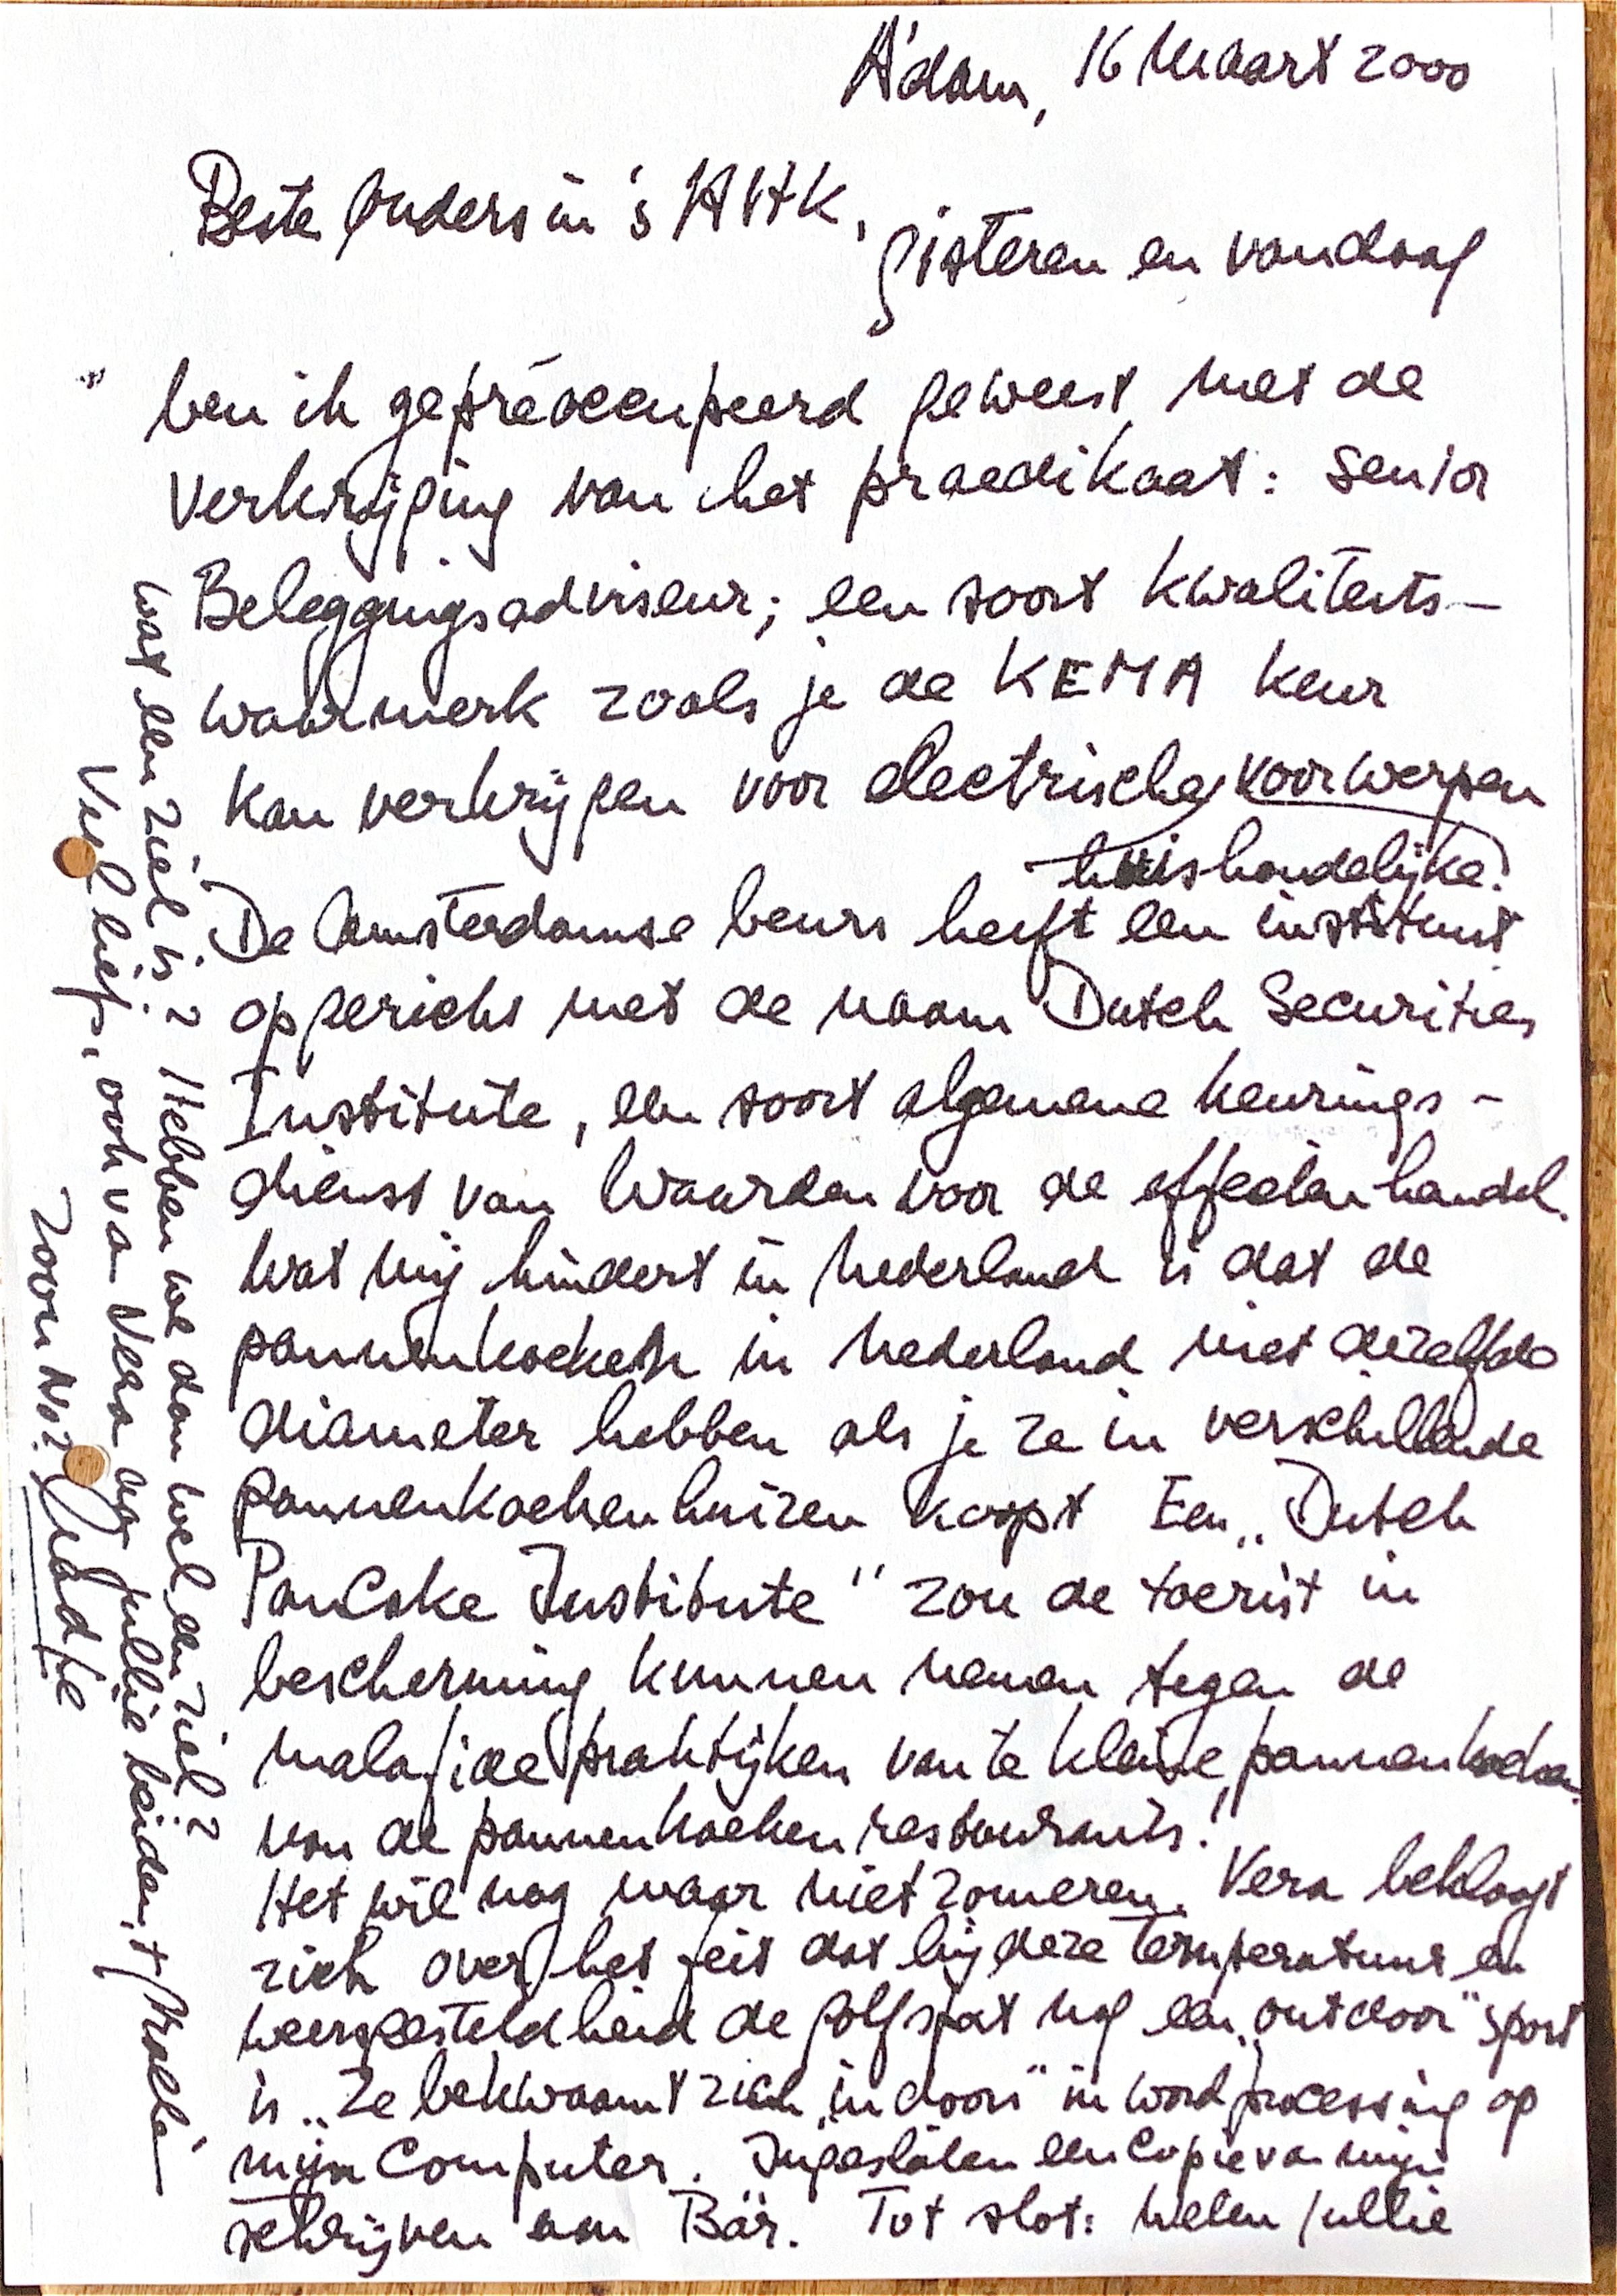 A'dam, 16 Maart 2000
Beste Ouders in 's HAHK,
gisteren en vandaag
ben ik gepréoccupeerd geweest met de
verkrijging van het praedikaat: senior
Beleggingsadviseur; een soort kwaliteits-
waarmerk zoals je de KEMA keur
kan verkrijgen voor electrische voorwerpen
huishoudelijke.
De Amsterdamse beurs heeft een instituut
opgericht met de naam Dutch Securities
Institute, een soort algemene keurings-
dienst van Waarden voor de effectenhandel.
Wat mij hindert in Nederland is dat de
pannenkoeken in Nederland niet dezelfde
diameter hebben als je ze in verschillende
pannenkoekenhuizen koopt Een „Dutch
PanCake Institute" zou de toerist in
bescherming kunnen nemen tegen de
malafide praktijken van te kleine pannenkoeken
van de pannenkoeken restaurants!
Het wil nog maar niet zomeren. Vera beklaagt
zich over het feit dat bij deze temperatuur en
weersgesteldheid de golfsport nog een „outdoor" sport
is „Ze bekwaamt zich „indoors" in wordprocessing op
mijn Computer. Ingesloten een Copie van mijn
schrijven aan Bär. Tot slot: weten jullie
wat een ziel is? Hebben we dan wel een ziel?
Veel liefs, ook van Vera aan jullie beiden, +
Zoon No2